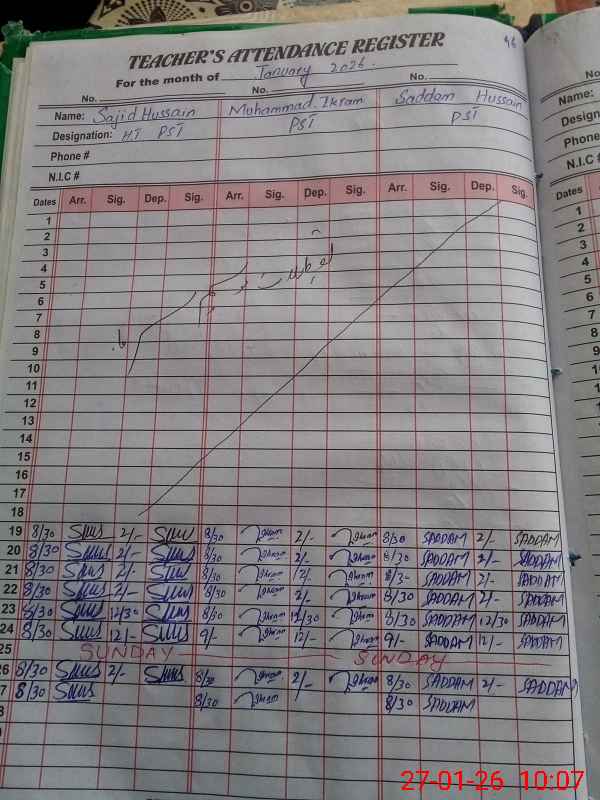 96
TEACHER'S ATTENDANCE REGISTER
For the month of January 2026.
No. No. No.
Name: Sajid Hussain Muhammad Ikram Saddam Hussain
Designation: HT PST PST PST
Phone #
N.I.C #
Dates Arr. Sig. Dep. Sig. Arr. Sig. Dep. Sig. Arr. Sig. Dep. Sig.
1
2
3
4
5
6
7
8
9
10
11
12
13
14
15
16
17
18
19 8/30 2/- 8/30 Ikram 2/- Ikram 8/30 SADDAM 2/- SADDAM
20 8/30 2/- 8/30 Ikram 2/- Ikram 8/30 SADDAM 2/- SADDAM
21 8/30 2/- 8/30 Ikram 2/- Ikram 8/30 SADDAM 2/- SADDAM
22 8/30 2/- 8/30 Ikram 2/- Ikram 8/30 SADDAM 2/- SADDAM
23 8/30 12/30 8/30 Ikram 12/30 Ikram 8/30 SADDAM 12/30 SADDAM
24 8/30 12/- 9/- Ikram 12/- Ikram 9/- SADDAM 12/- SADDAM
25 SUNDAY SUNDAY
26 8/30 2/- 8/30 Ikram 2/- Ikram 8/30 SADDAM 2/- SADDAM
7 8/30 8/30 Ikram 8/30 SADDAM
8
No
Name:
Design
Phone
N.I.C
Dates
1
2
3
4
5
6
7
8
9
10
11
12
13
14
15
16
17
18
19
20
21
22
23
24
25
26
27
28
29
27-01-26 10:07